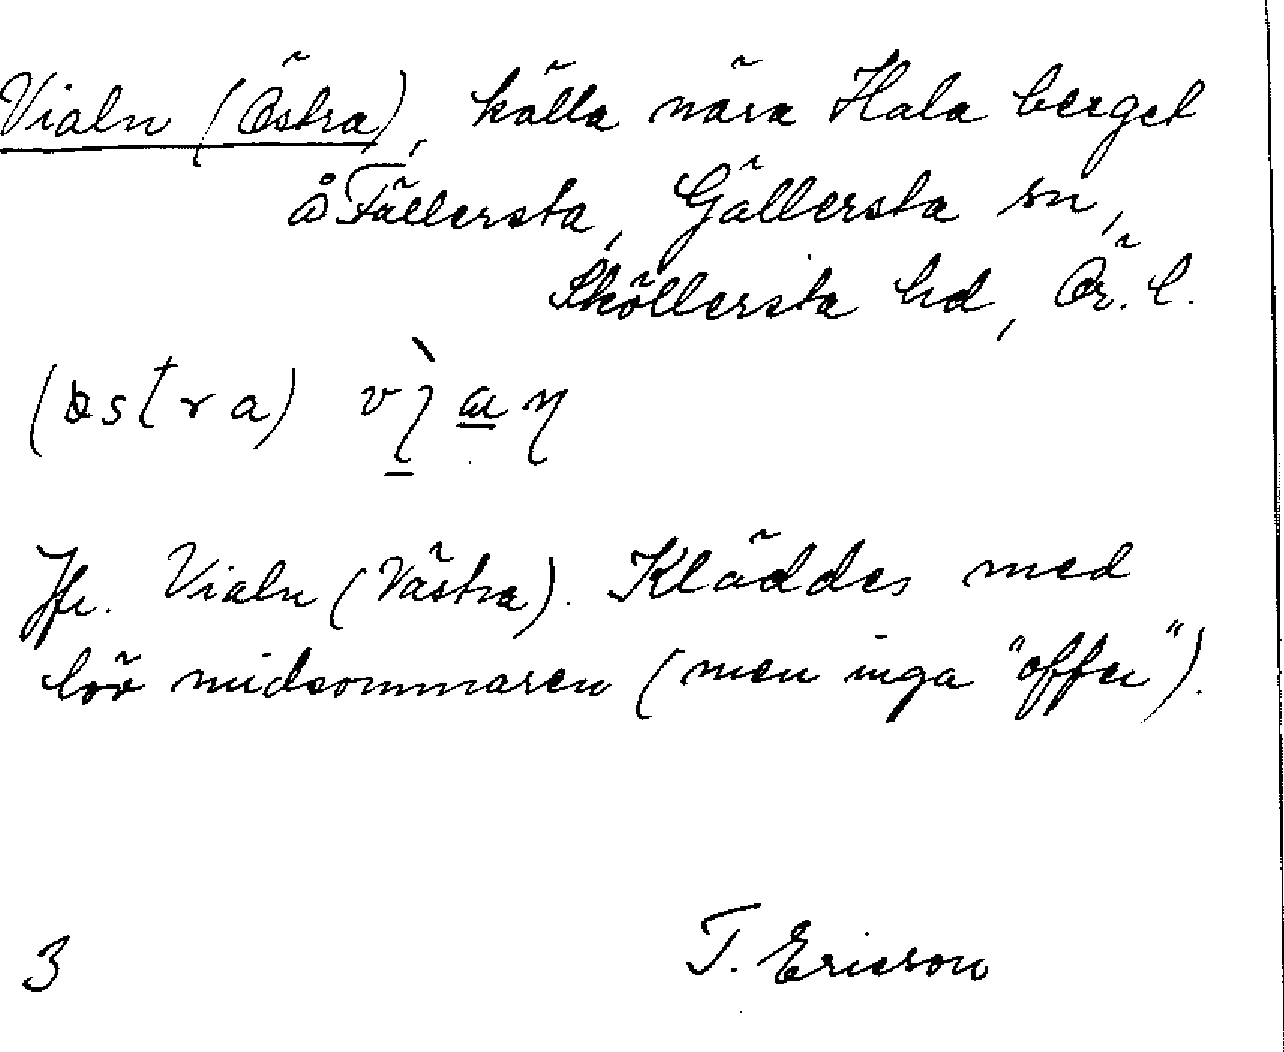 Vialn (Östra), källa nära Hala berget
å Fällersta, Gällersta sn,
Sköllersta hd, Ör. l.
Jfr. Vialn (Västra). Kläddes med
löv midsommaren (men inga "offer").
3 T. Ericson